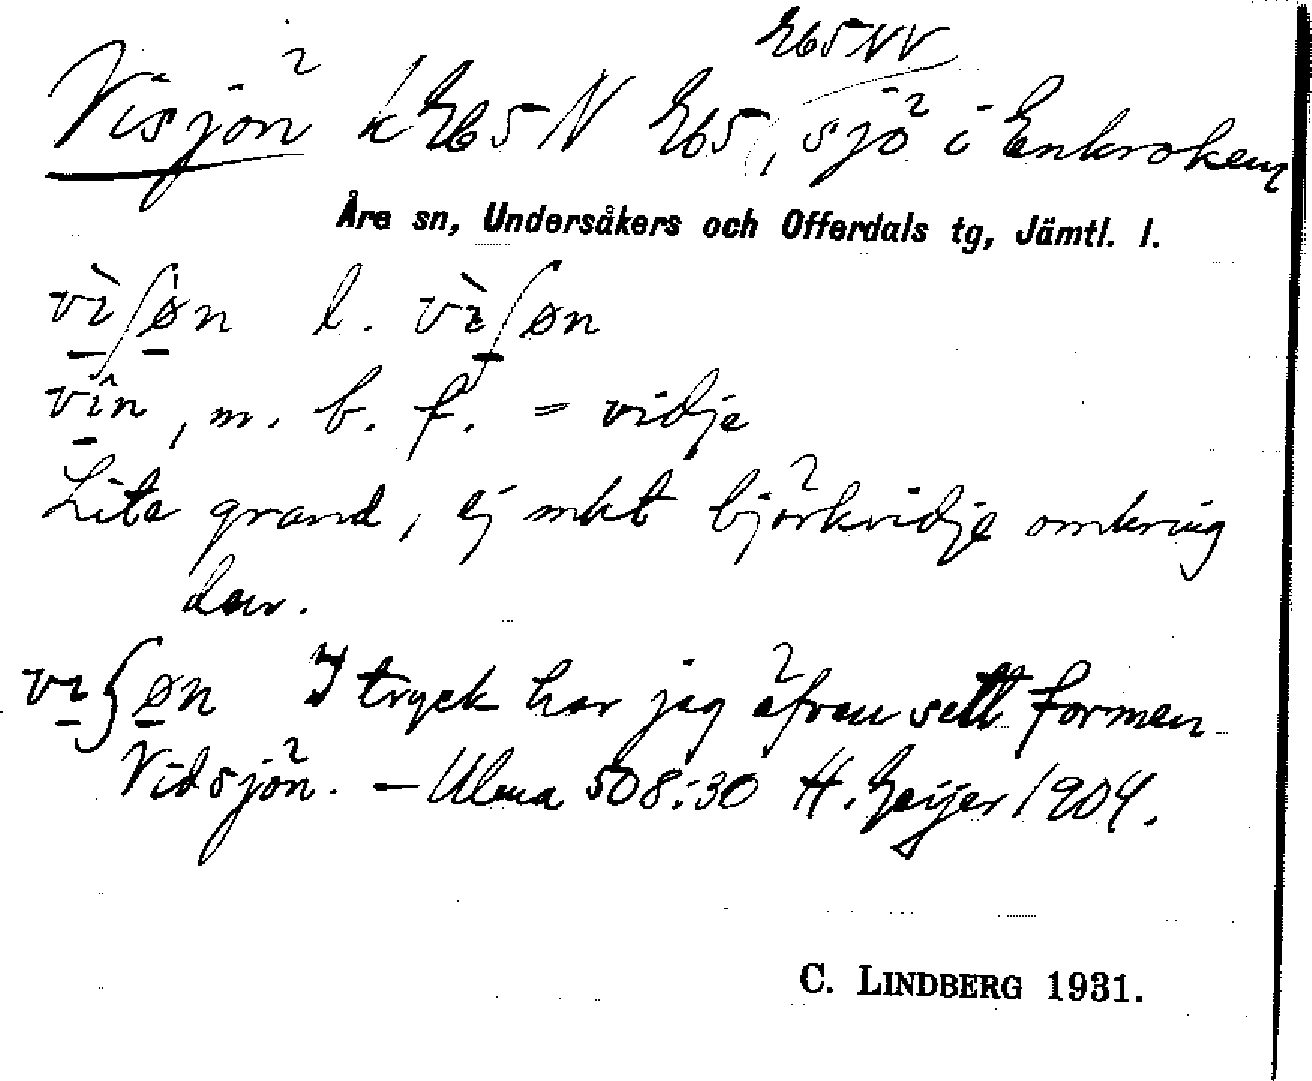 265 NV
Visjön k 265 N 265, sjö i Enkroken,
Åre sn, Undersåkers och Offerdals tg, Jämtl. l.
vìʃøn l. vìʃøn
vîn, m. b. f. = vidje
Lite grand, ej mkt björkvidje omkring
den.
vıʃøn I tryck har jag äfven sett formen
Vidsjön. – Ulma 508:30 H. Geijer 1904.
C. LINDBERG 1931.